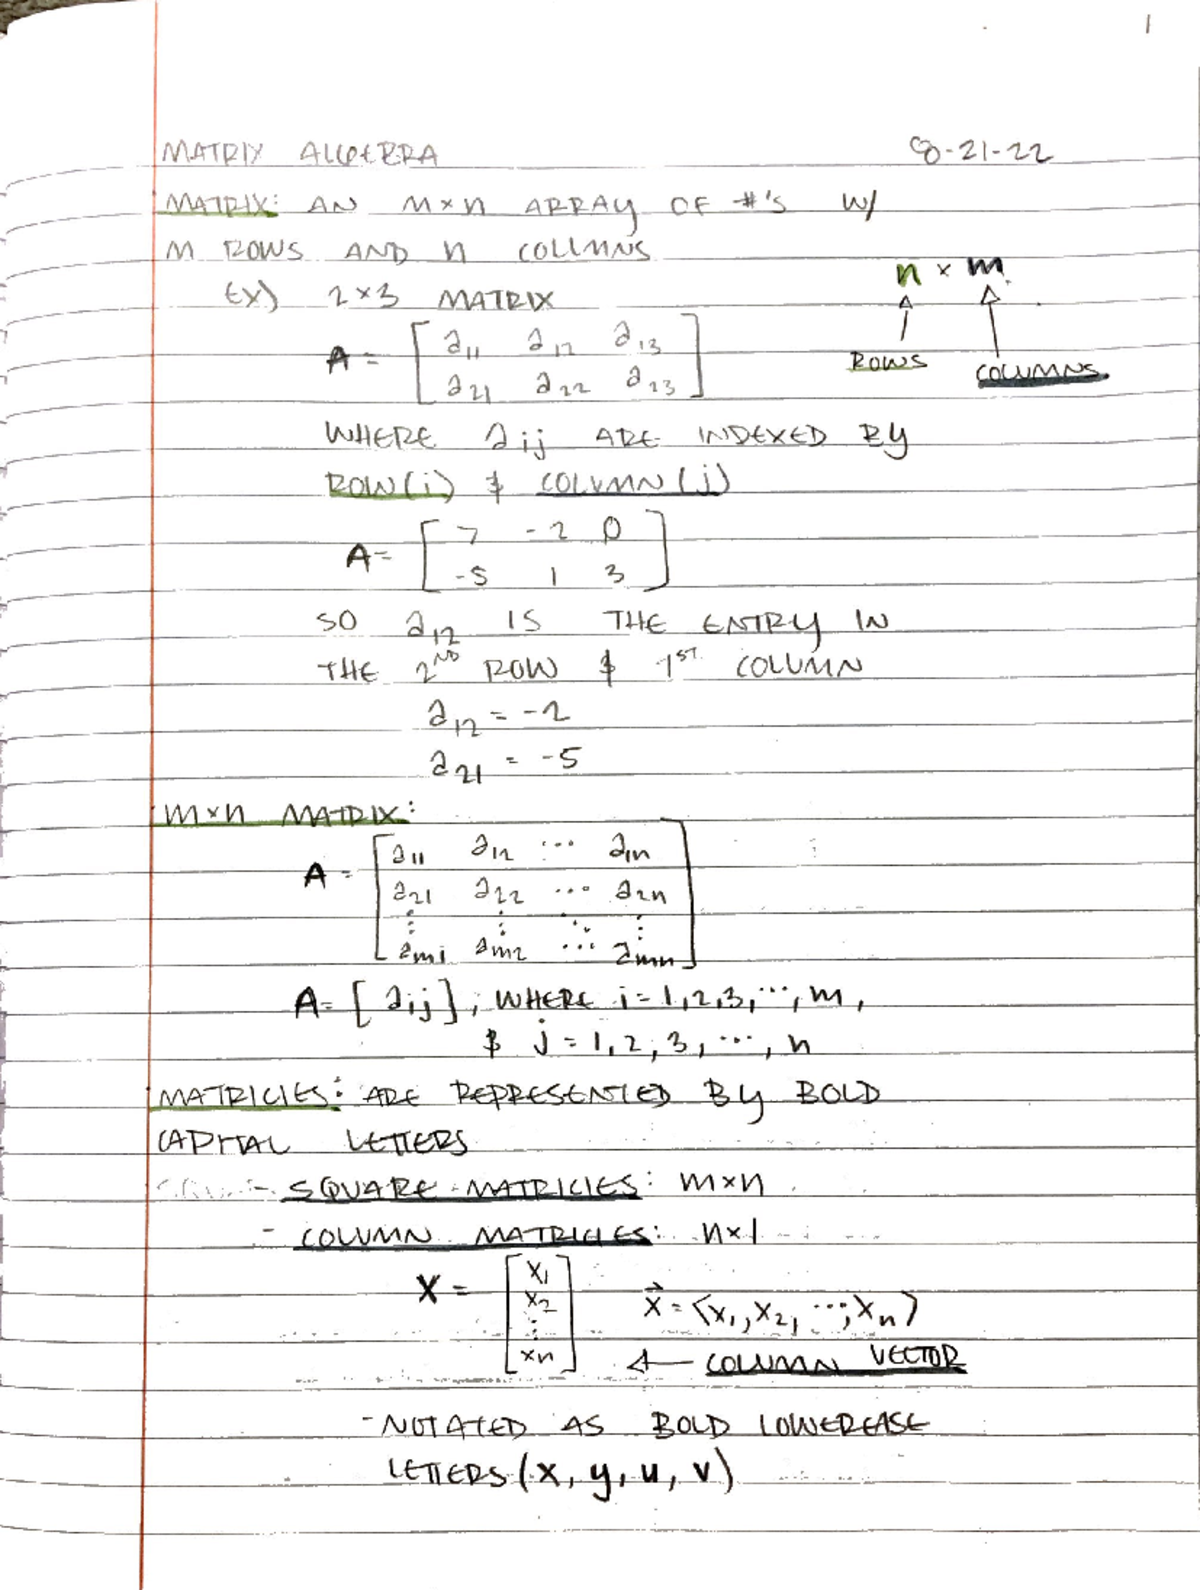 1
MATRIX ALGEBRA 8-21-22
MATRIX: AN m×n ARRAY OF #'S W/
M ROWS AND n COLUMNS
n × m
EX) 2×3 MATRIX
A = [ a11 a12 a13
a21 a22 a23 ]
ROWS COLUMNS
WHERE aij ARE INDEXED BY
ROW(i) & COLUMN (j)
A = [ 7 -2 0
-5 1 3 ]
SO a12 IS THE ENTRY IN
THE 2ND ROW & 1ST COLUMN
a12 = -2
a21 = -5
m×n MATRIX:
A = [ a11 a12 ... a1n
a21 a22 ... a2n
⋮ ⋮ ⋱ ⋮
am1 am2 ... amn ]
A = [aij], WHERE i = 1,2,3,...,m,
& j = 1,2,3,...,n
MATRICIES: ARE REPRESENTED BY BOLD
CAPITAL LETTERS
- SQUARE MATRICIES: m×n
- COLUMN MATRICIES: n×1
X = [ x1
x2
⋮
xn ]
x⃗ = ⟨x1, x2, ..., xn⟩
← COLUMN VECTOR
- NOTATED AS BOLD LOWERCASE
LETTERS (x, y, u, v)